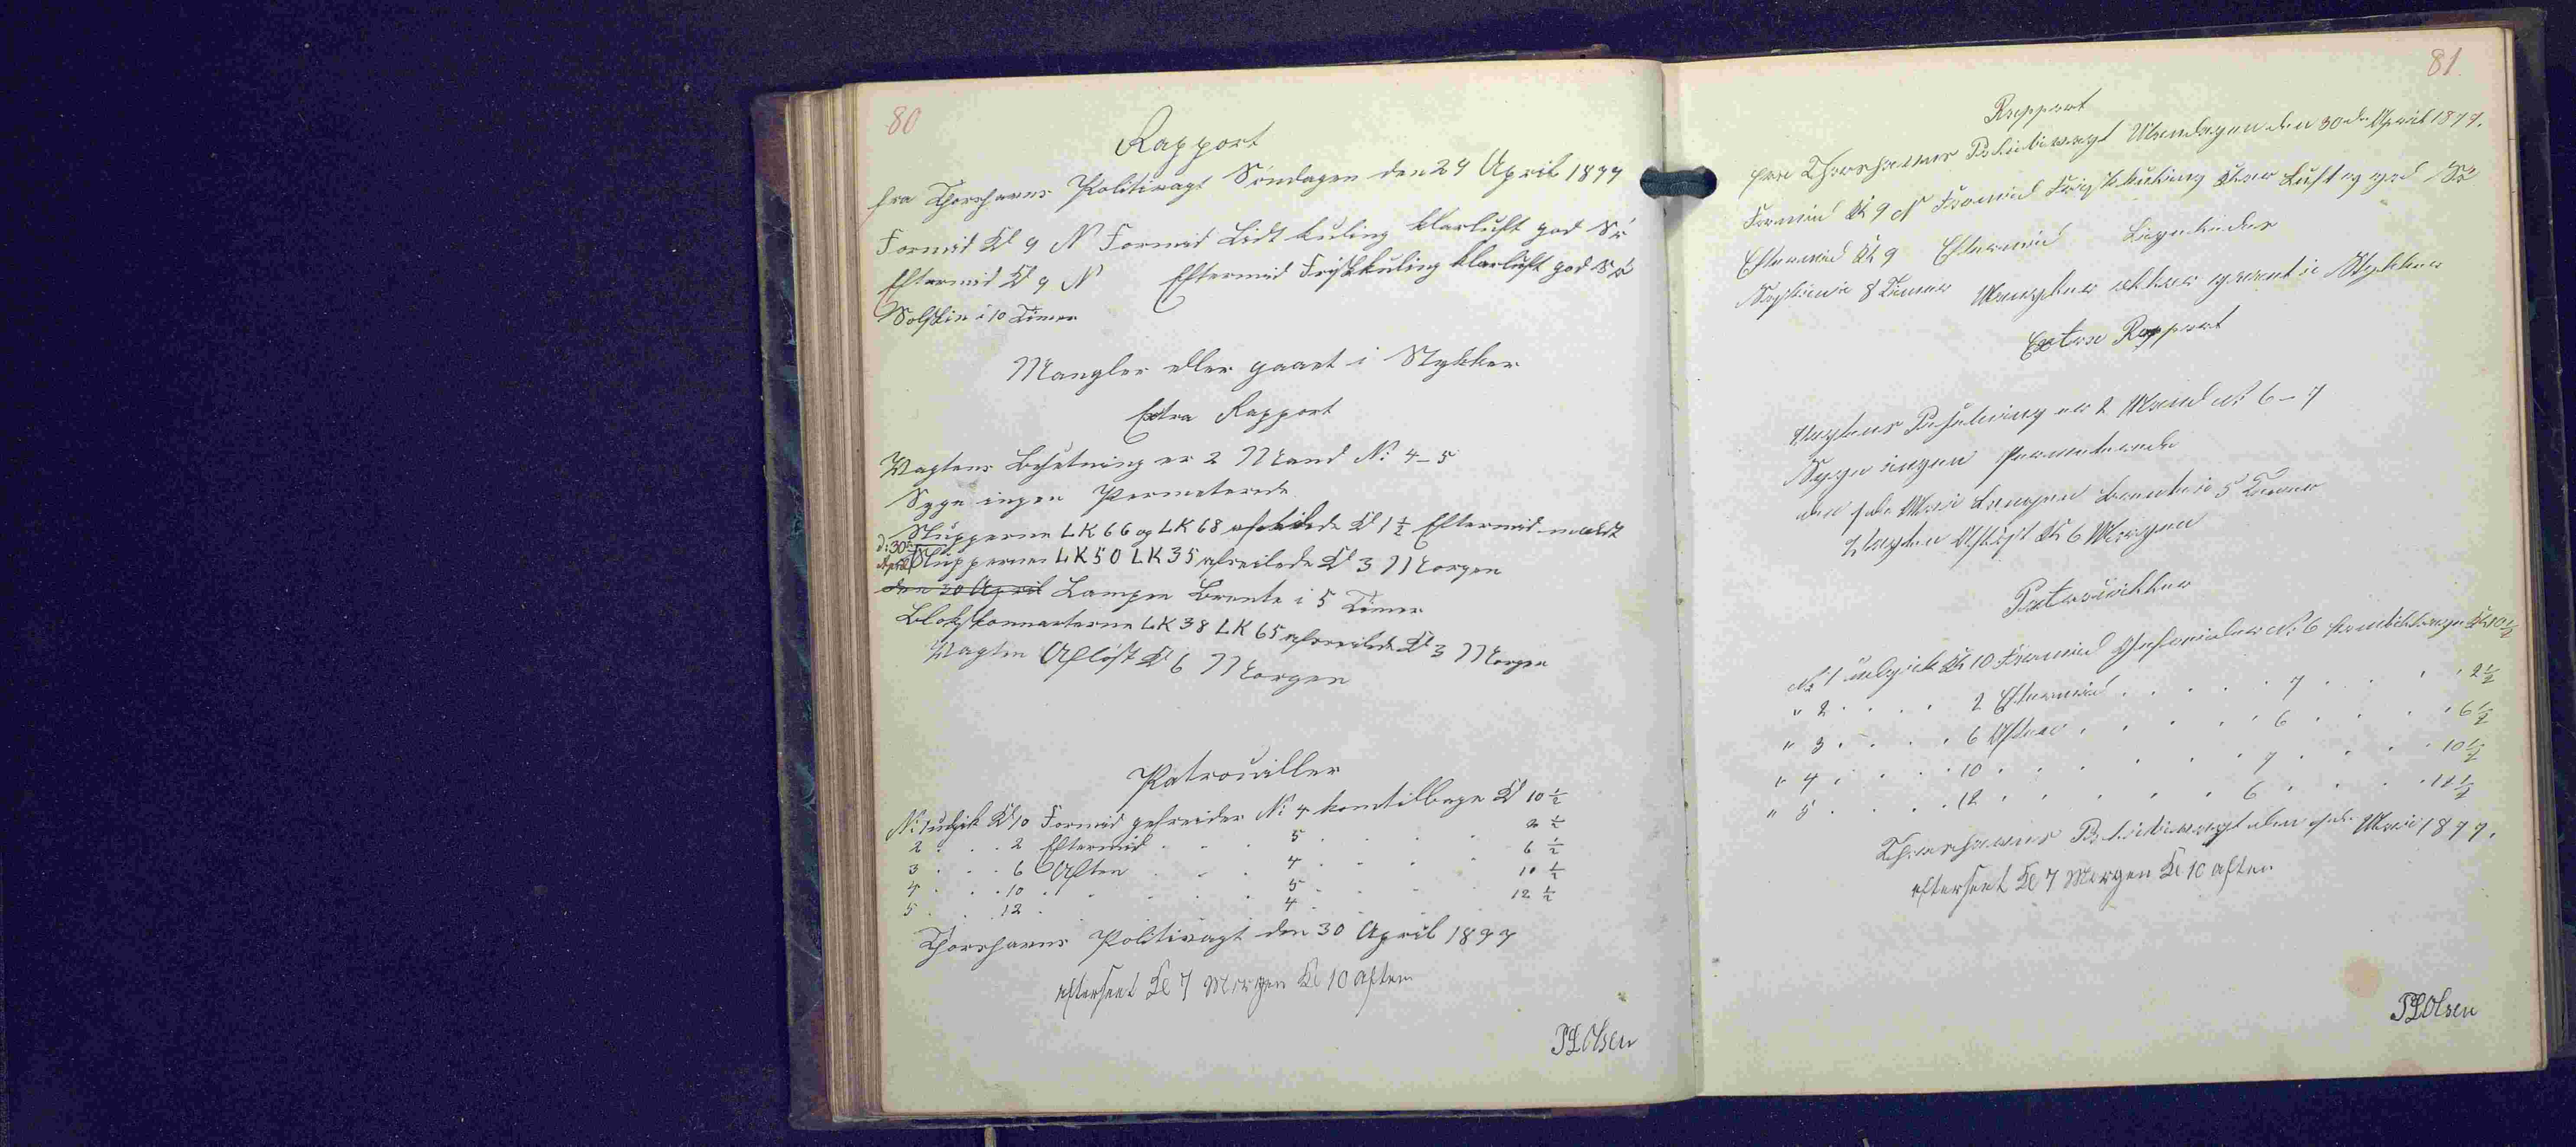 80
Rapport
fra Thorshavns Politivagt Søndagen den 29 April 1877
Formid Kl 9 N Formid Lidt kuling klarluft god Sø
Eftermid Kl 9 N Eftermid Friskkuling klarluft god Sø
Solskin i 10 Timer
Mangler eller gaaet i Stykker
Extra Rapport
Vagtens Besætning er 2 Mand No: 4-5
Syge ingen Permeterede
Slupperne LK 66 og LK 68 afseilede Kl 1½ Eftermid
d: 30te April Slupperne LK 50 LK 35 afseilede Kl 3 Morgen
den 30 April Lampen Brente i 5 Timer
LK 38 LK 65 afseilede Kl 3 Morgen
Vagten Afløst Kl 6 Morgen
Patrouiller
No: 1 udgik Kl 10 Formid gefreider No: 4 kom tilbage Kl 10½
2 . . . 2 Eftermid . . . 5 . . . 2½
3 . . . 6 Aften . . . 4 . . . 6½
4 . . . 10 . . . 5 . . . 10½
5 . . . 12 . . . 4 . . . 12½
Thorshavns Politivagt den 30 April 1877
efterseet Kl 7 Morgen Kl 10 aften
Olsen
81
Rapport
fra Thorshavns Politivagt Mandagen den 30de April 1877.
Formid Kl 9 N Formid Frisk kuling klar Luft og god Sø
Eftermid Kl 9 Eftermid Ligeledes
Solskin i 8 Timer Mangler eller gaaet i Stykker
Extra Rapport
Vagtens Besætning er 2 Mand No 6-7
Syge ingen Permeterede
den 1de Mai Lampen brente i 5 Timer
Vagten Afløst Kl 6 Morgen
Patrouiller
No 1 udgik Kl 10 Formid Gefreider No: 6 kom tilbage Kl 10½
" 2 . . . . 2 Eftermid . . . . 7 . . . . 2½
" 3 . . . . 6 Aften . . . . 6 . . . . 6½
" 4 . . . . 10 . . . . 7 . . . . 10½
" 5 . . . . 12 . . . . 6 . . . . 12½
Thorshavns Politivagt den 1de Mai 1877.
efterseet Kl 7 Morgen Kl 10 aften
Olsen